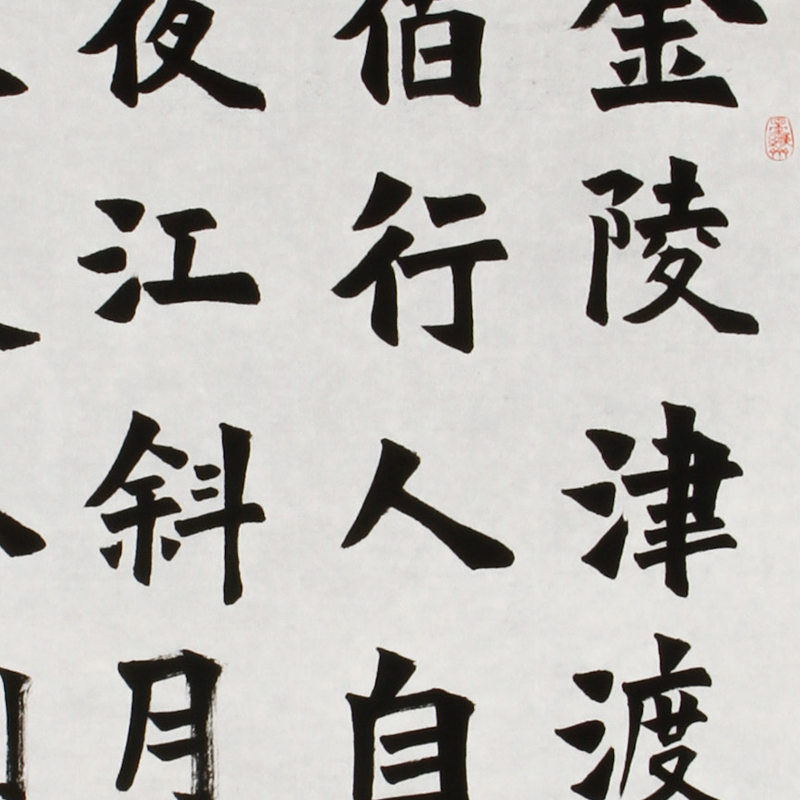 金陵津渡
宿行人自
夜江斜月